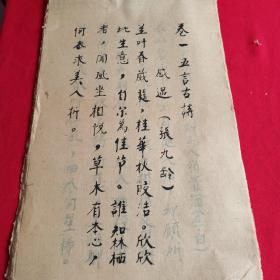 卷一五言古诗
感遇（張九龄）
兰叶春葳蕤，桂華秋皎洁。欣欣
此生意，自尔為佳节。誰知林栖
者，闻風坐相悦，草木有本心，
何求美人折。